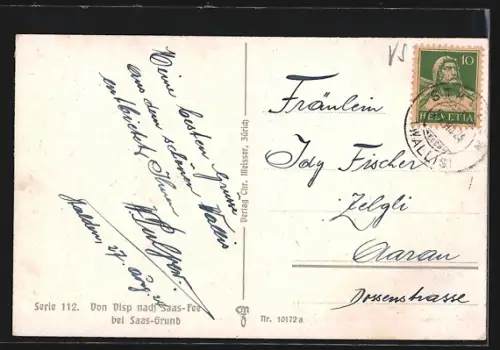 Meine besten Grüsse
aus dem schönen Wallis
entbietet Ihnen
Stalden, 27. Aug.
Serie 112. Von Visp nach Saas-Fee
bei Saas-Grund
Verlag Chr. Meisser, Zürich
Nr. 10172a
VS
10
HELVETIA
WALLIS
Fräulein
Idy Fischer
Zelgli
Aarau
Dossenstrasse